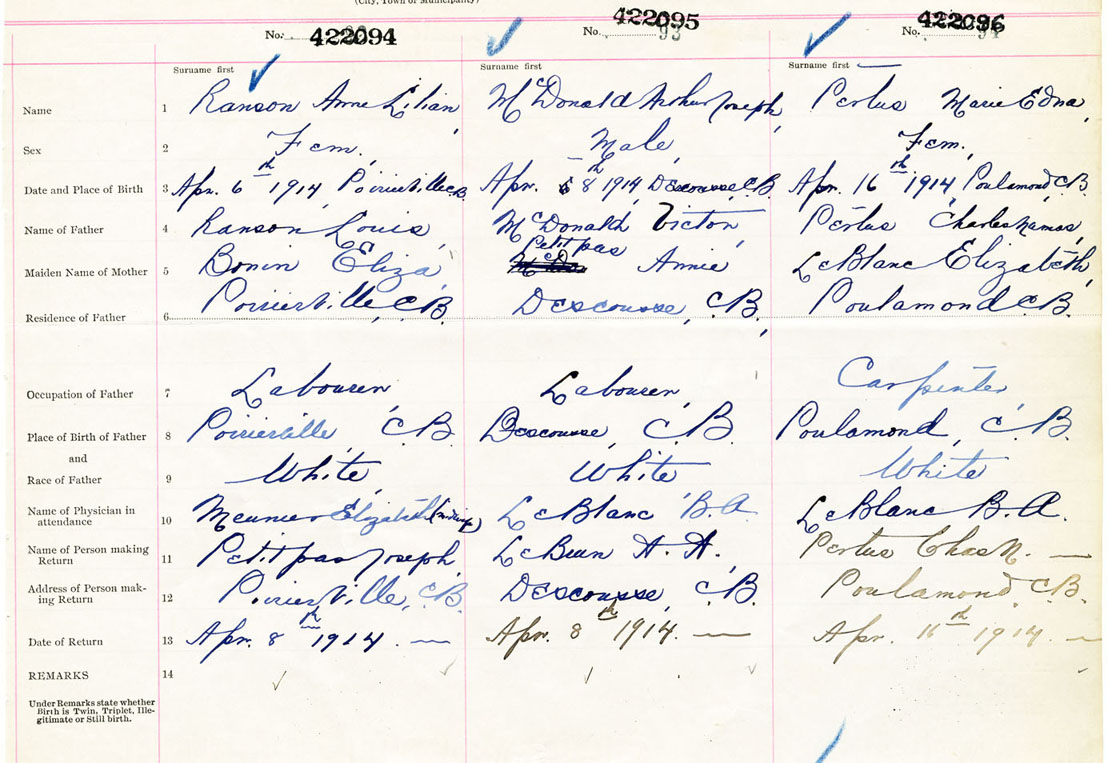 (City, Town or Municipality)
No. 422094 No. 422095 93 No. 422096 94
Surname first Surname first Surname first
Name 1 Ranson Anne Lilian, McDonald Arthur Joseph, Pertus Marie Edna,
Sex 2 Fem., Male, Fem.,
Date and Place of Birth 3 Apr. 6th 1914, Poirierville C.B. Apr. 8th 1914, Descousse, C.B. Apr. 16th 1914, Poulamond, C.B.
Name of Father 4 Ranson Louis, McDonald Victor, Pertus Charles
Petitpas
Maiden Name of Mother 5 Bonin Eliza Annie LeBlanc Elizabeth,
Residence of Father 6 Poirierville, C.B. Descousse, C.B., Poulamond C.B.
Occupation of Father 7 Labourer, Labourer, Carpenter,
Place of Birth of Father 8 Poirierville, C.B. Descousse, C.B. Poulamond, C.B.
and
Race of Father 9 White, White White
Name of Physician in
attendance 10 Meunier Elizabeth (midwife) LeBlanc B.A. LeBlanc B.A.
Name of Person making
Return 11 Petitpas Joseph, LeBrun A. A. Pertus Chas N.
Address of Person mak-
ing Return 12 Poirierville, C.B. Descousse, C.B. Poulamond, C.B.
Date of Return 13 Apr. 8th 1914. Apr. 8th 1914. Apr. 16th 1914.
REMARKS 14
Under Remarks state whether
Birth is Twin, Triplet, Ille-
gitimate or Still birth.